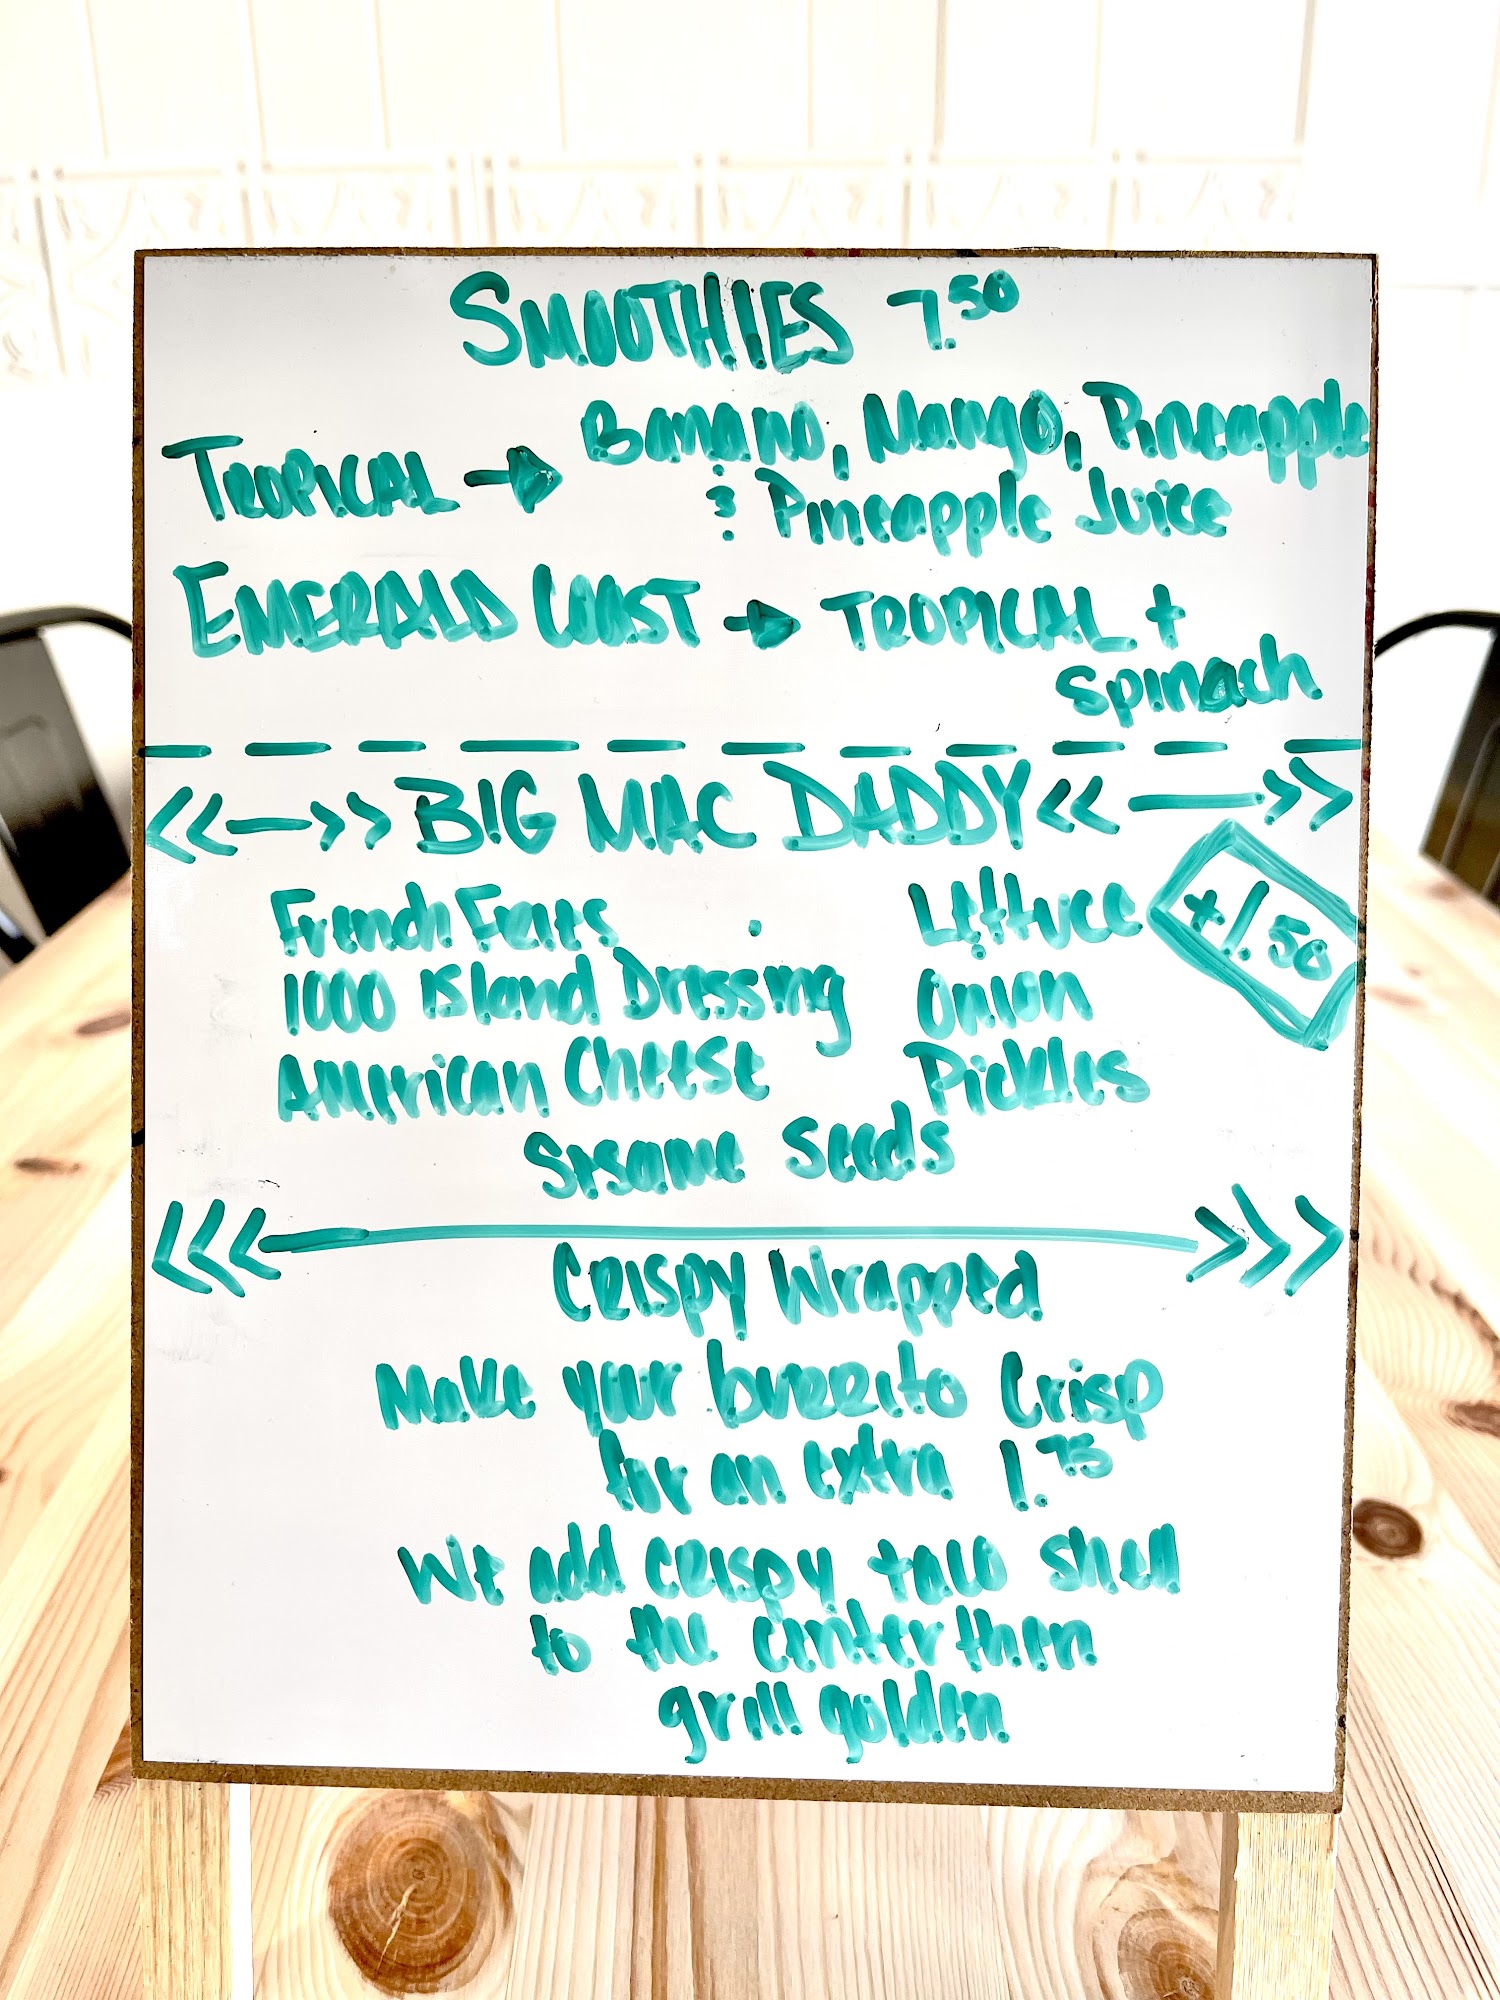 SMOOTHIES 7.50
TROPICAL → Banana, Mango, Pineapple
& Pineapple Juice
EMERALD COAST → TROPICAL +
Spinach
BIG MAC DADDY
+1.50
French Fries
Lettuce
1000 Island Dressing
Onion
American Cheese
Pickles
Sesame Seeds
Crispy Wrapped
Make your burrito Crisp
for an extra 1.75
We add crispy taco shell
to the center then
grill golden